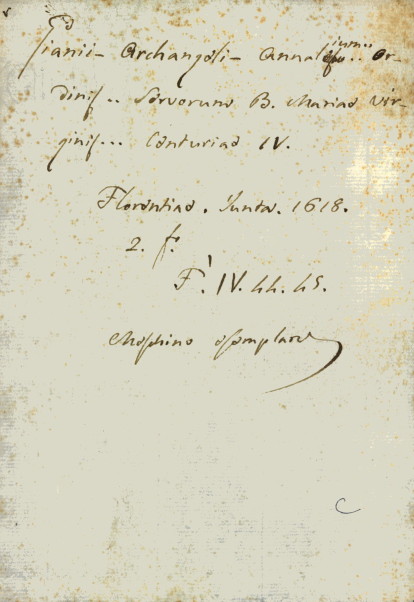 Gianii - Archangeli - Annalium .. Or-
dinis .. Servorum B. Mariae Vir-
ginis ... Centuriae IV.
Florentiae. Junta. 1618.
2. f.
F. IV. 44. 45.
C